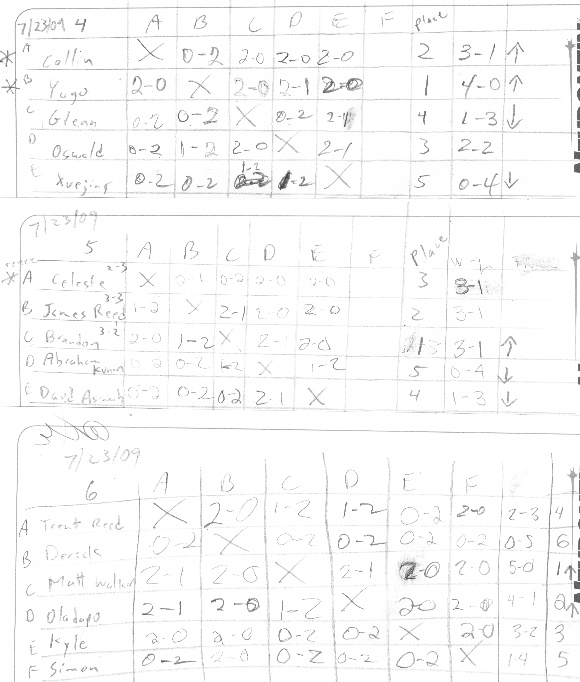 7/23/09 4 A B C D E F place
* A Collin X 0-2 2-0 2-0 2-0 2 3-1 ↑
* B Yugo 2-0 X 2-0 2-1 2-0 1 4-0 ↑
C Glenn 0-2 0-2 X 0-2 2-1 4 1-3 ↓
D Oswald 0-2 1-2 2-0 X 2-1 3 2-2
E Xuejing 0-2 0-2 1-2 1-2 X 5 0-4 ↓
7/23/09
5 A B C D E F place
* A Celeste 2-3 X 0-1 0-2 2-0 2-0 3 3-1
B James Reed 3-3 1-2 X 2-1 2-0 2-0 2 3-1
C Brandon 3-2 2-0 1-2 X 2-1 2-0 1 3-1 ↑
D Abraham 0-2 0-2 X 1-2 5 0-4 ↓
E David 0-2 0-2 0-2 2-1 X 4 1-3 ↓
7/23/09
6 A B C D E F
A Trent Reed X 2-0 1-2 1-2 0-2 2-0 2-3 4
B Derick 0-2 X 0-2 0-2 0-2 0-2 0-5 6
C Matt 2-1 2-0 X 2-1 2-0 2-0 5-0 1 ↑
D Oladapo 2-1 2-0 1-2 X 2-0 2-0 4-1 2 ↑
E Kyle 2-0 2-0 0-2 0-2 X 2-0 3-2 3
F Simon 0-2 2-0 0-2 0-2 0-2 X 1-4 5